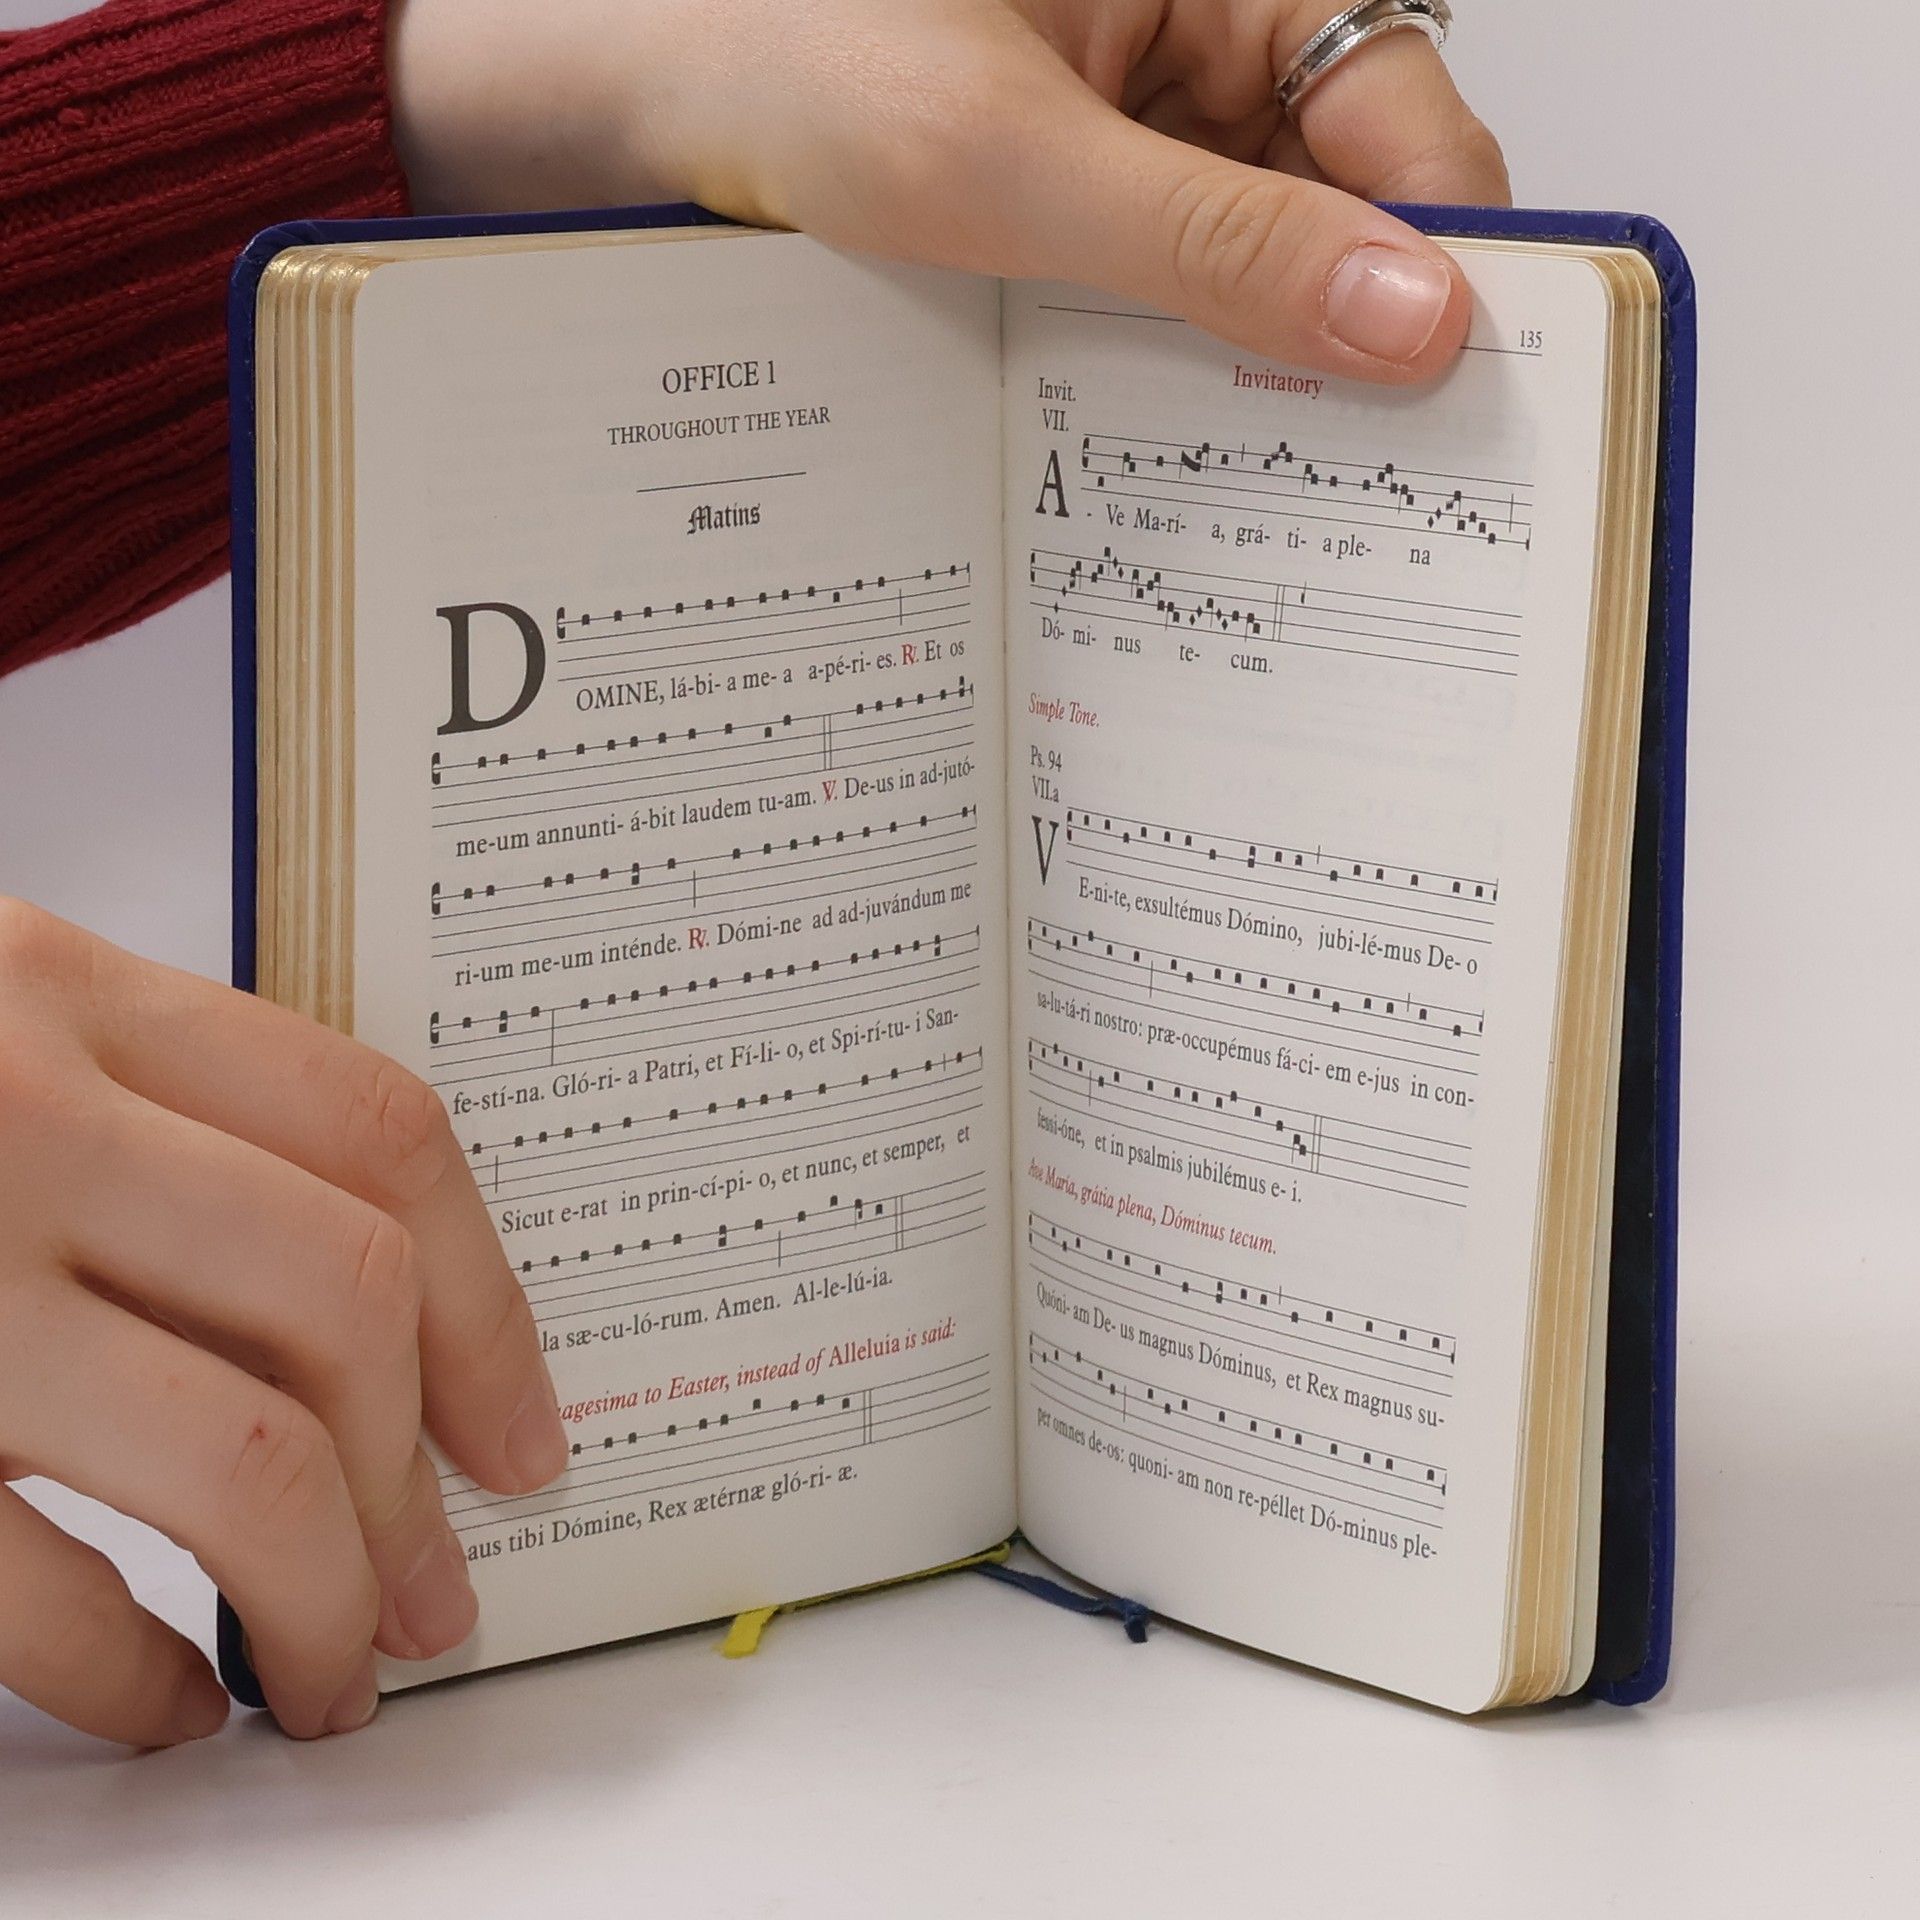 OFFICE 1
THROUGHOUT THE YEAR
Matins
DOMINE, lá-bi- a me- a a-pé-ri- es. ℟. Et os
me-um annunti- á-bit laudem tu-am. ℣. De-us in ad-jutó-
ri-um me-um inténde. ℟. Dómi-ne ad ad-juvándum me
fe-stí-na. Gló-ri- a Patri, et Fí-li- o, et Spi-rí-tu- i San-
Sicut e-rat in prin-cí-pi- o, et nunc, et semper, et
la sæ-cu-ló-rum. Amen. Al-le-lú-ia.
agesima to Easter, instead of Alleluia is said:
aus tibi Dómine, Rex ætérnæ gló-ri- æ.
135
Invitatory
Invit.
VII.
A - Ve Ma-rí- a, grá- ti- a ple- na
Dó- mi- nus te- cum.
Simple Tone.
Ps. 94
VII.a
VE-ni-te, exsultémus Dómino, jubi-lé-mus De- o
sa-lu-tá-ri nostro: præ-occupémus fá-ci- em e-jus in con-
fessi-óne, et in psalmis jubilémus e- i.
Ave María, grátia plena, Dóminus tecum.
Quóni- am De- us magnus Dóminus, et Rex magnus su-
per omnes de-os: quoni- am non re-péllet Dó-minus ple-